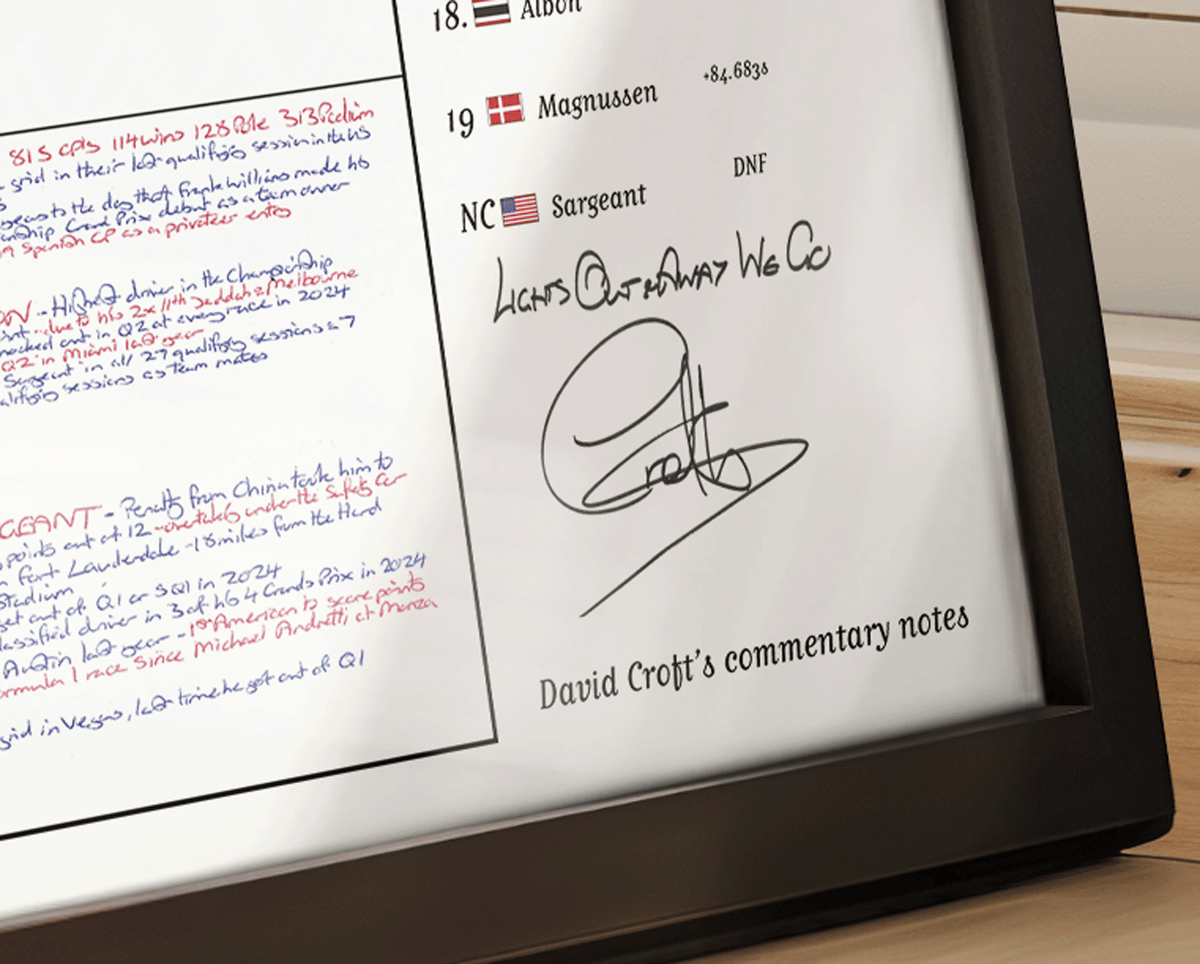 815 GPs 114 wins 128 Pole 313 Podium
grid in their last qualifying session in the US
years to the day that Frank Williams made his
Championship Grand Prix debut as a team owner
Spanish GP as a privateer entry
ON - Highest driver in the Championship
due to his 2x 11th Jeddah & Melbourne
knocked out in Q2 at every race in 2024
Q2 in Miami last year
Sargeant in all 27 qualifying sessions = 7
qualifying sessions as team mates
GEANT - Penalty from China took him to
points out of 12 - overtaking under the Safety Car
Fort Lauderdale - 18 miles from the Hard
Stadium
get out of Q1 or SQ1 in 2024
classified driver in 3 of his 4 Grands Prix in 2024
Austin last year - 1st American to score points
Formula 1 race since Michael Andretti at Monza
grid in Vegas, last time he got out of Q1
18. Albon
19 Magnussen +84.683s
NC Sargeant DNF
LIGHTS OUT & AWAY WE GO
Croft
David Croft's commentary notes